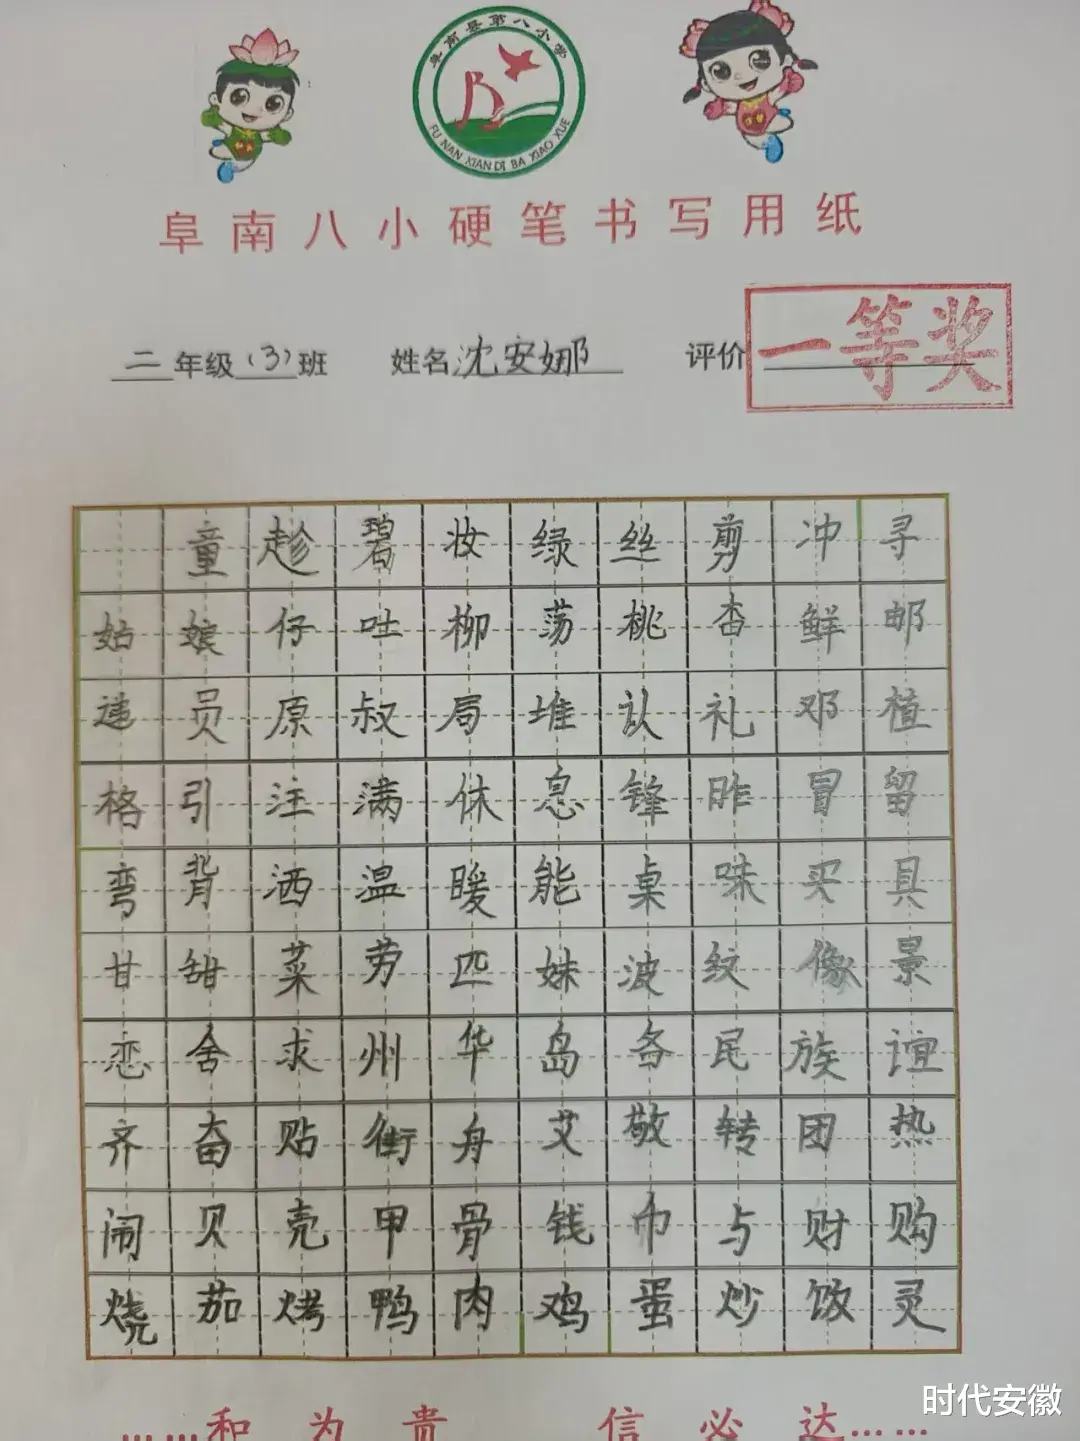 阜南县第八小学
FU NAN XIAN DI BA XIAO XUE
阜南八小硬笔书写用纸
二年级(3)班 姓名沈安娜 评价 一等奖
童趁碧妆绿丝剪冲寻
姑娘仔吐柳荡桃杏鲜邮
递员原叔局堆认礼邓植
格引注满休息锋昨冒留
弯背洒温暖能桌味买具
甘甜菜劳匹妹波纹像景
恋舍求州华岛各民族谊
齐奋贴街舟艾敬转团热
闹贝壳甲骨钱币与财购
烧茄烤鸭肉鸡蛋炒饭灵
……和为贵 信必达……
时代安徽